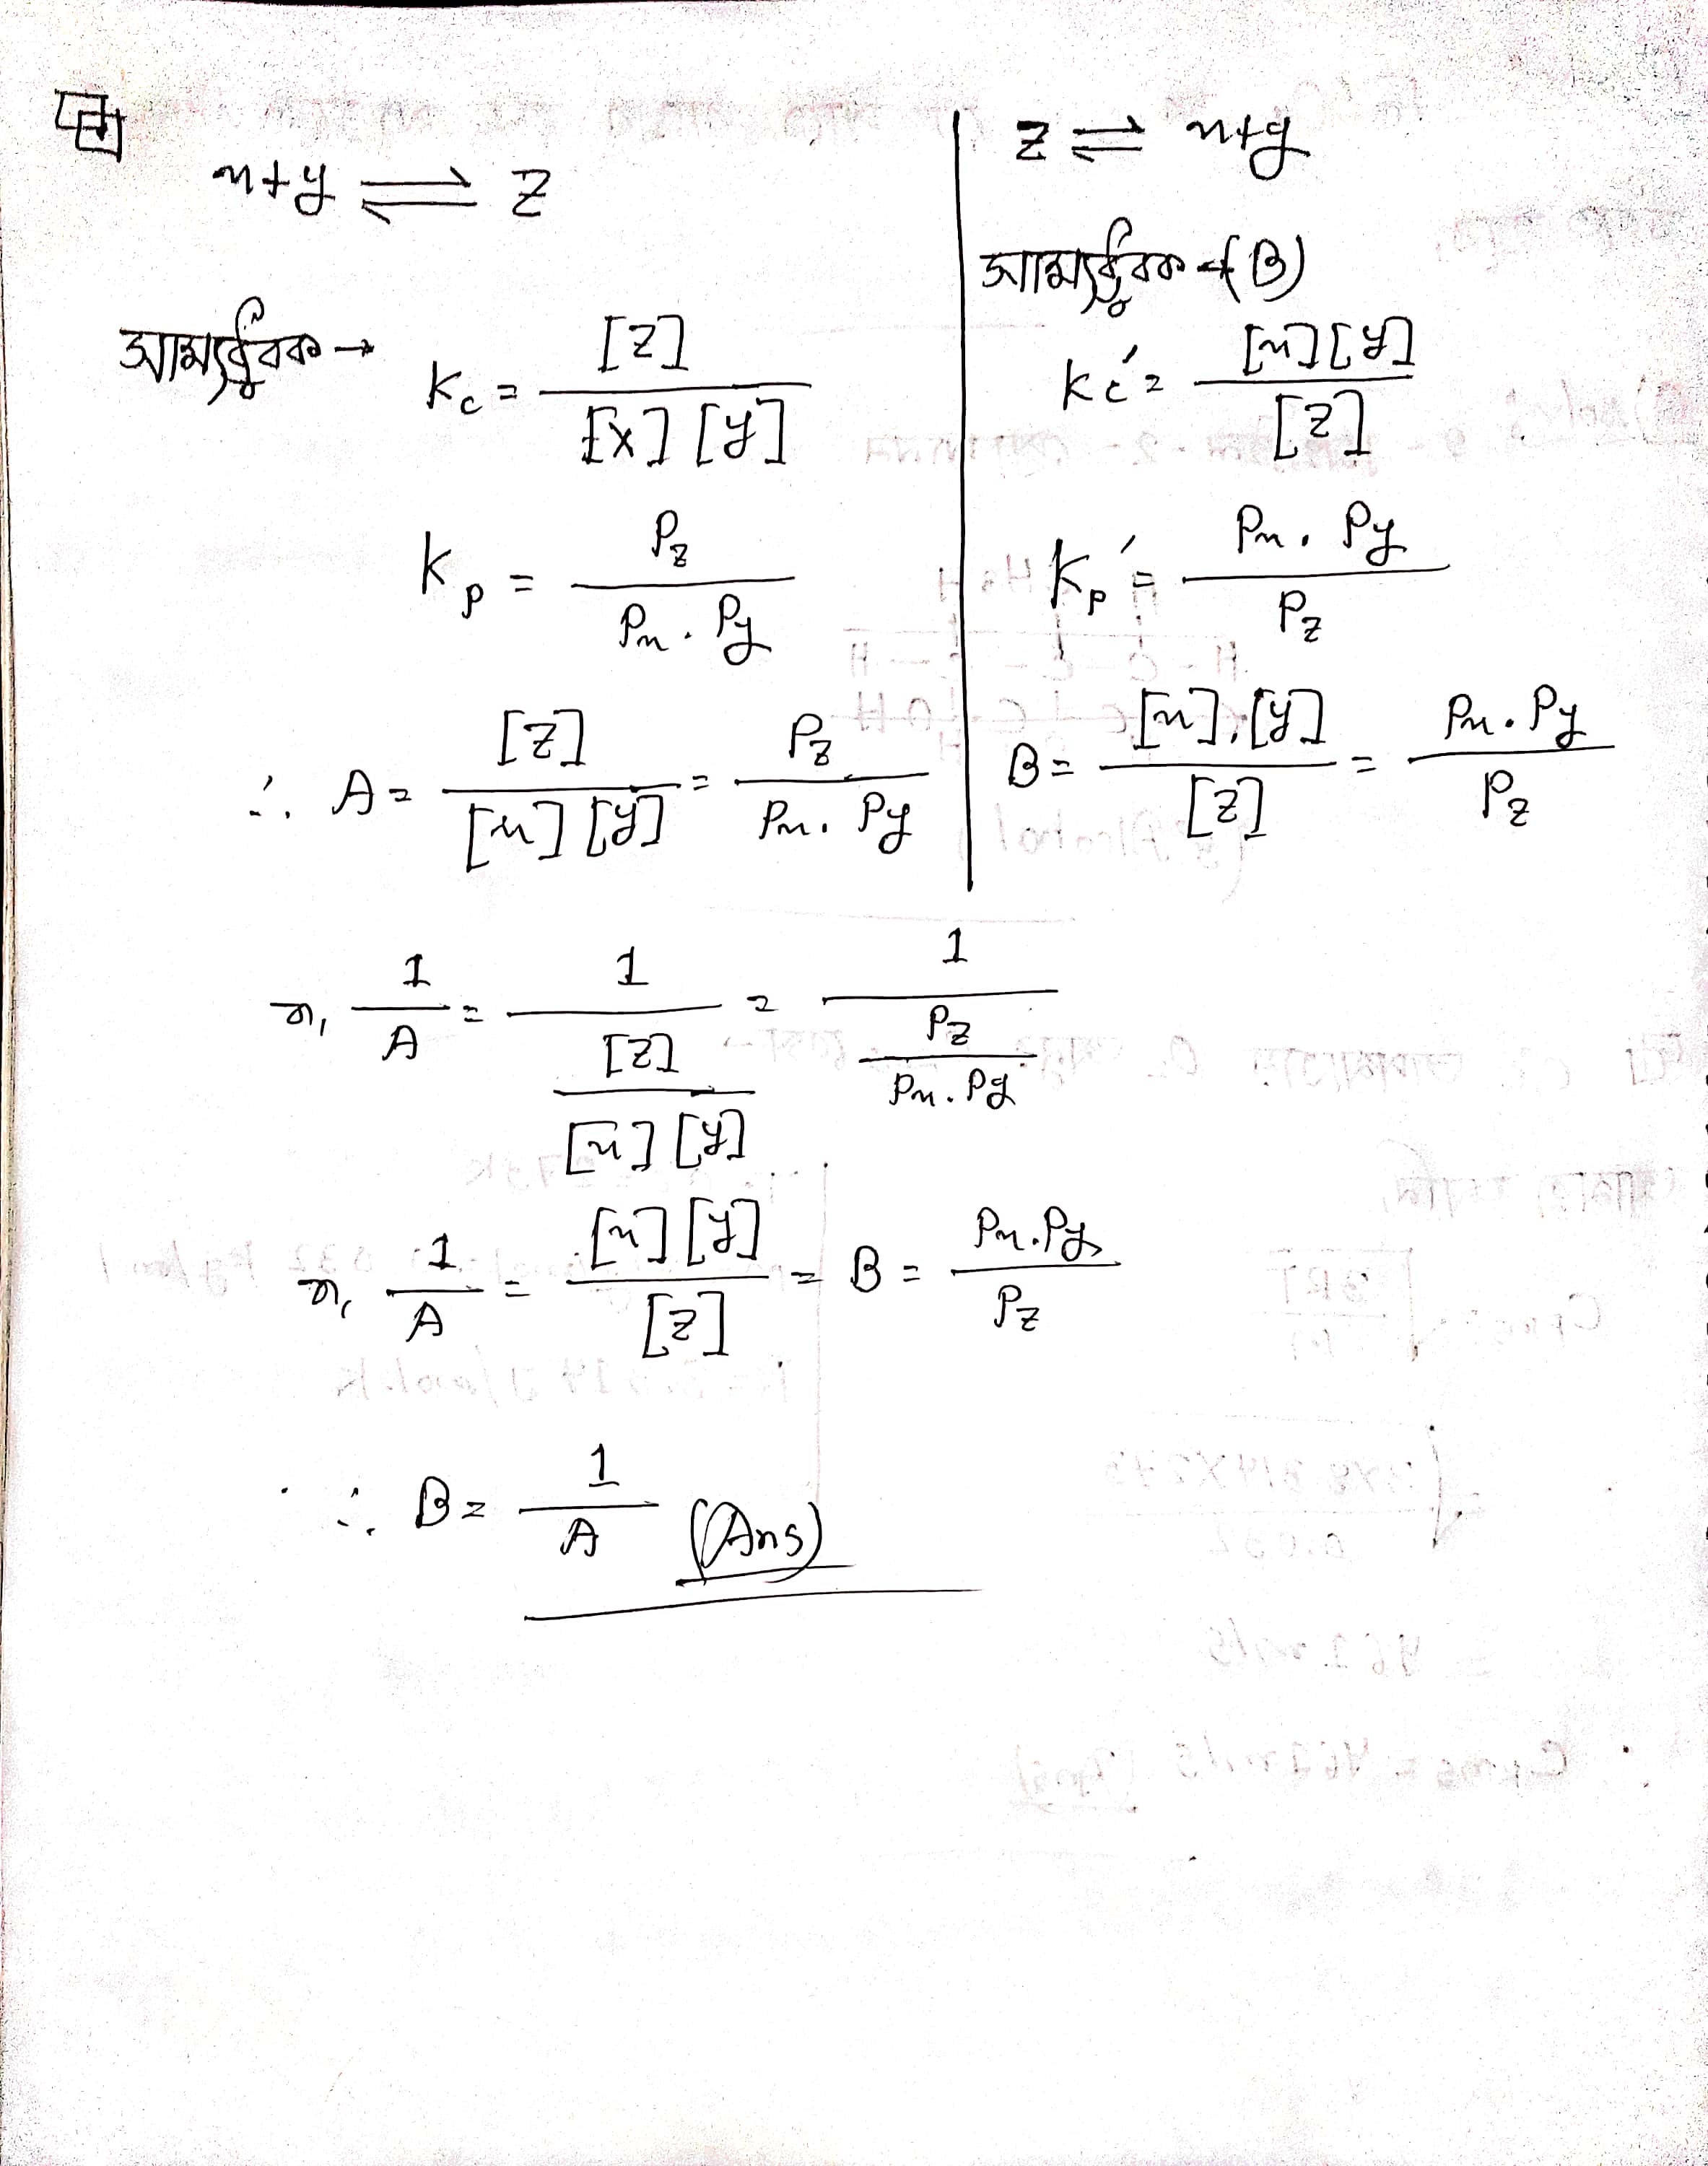 x+y ⇌ z
সাম্যধ্রুবক → Kc = [z] / [x] [y]
Kp = Pz / Px . Py
∴ A = [z] / [x] [y] = Pz / Px . Py
z ⇌ x+y
সাম্যধ্রুবক (B)
Kc' = [x] [y] / [z]
Kp' = Px . Py / Pz
B = [x] . [y] / [z] = Px . Py / Pz
বা, 1 / A = 1 / ([z] / [x] [y]) = 1 / (Pz / Px . Py)
বা, 1 / A = [x] [y] / [z] = B = Px . Py / Pz
∴ B = 1 / A (Ans)